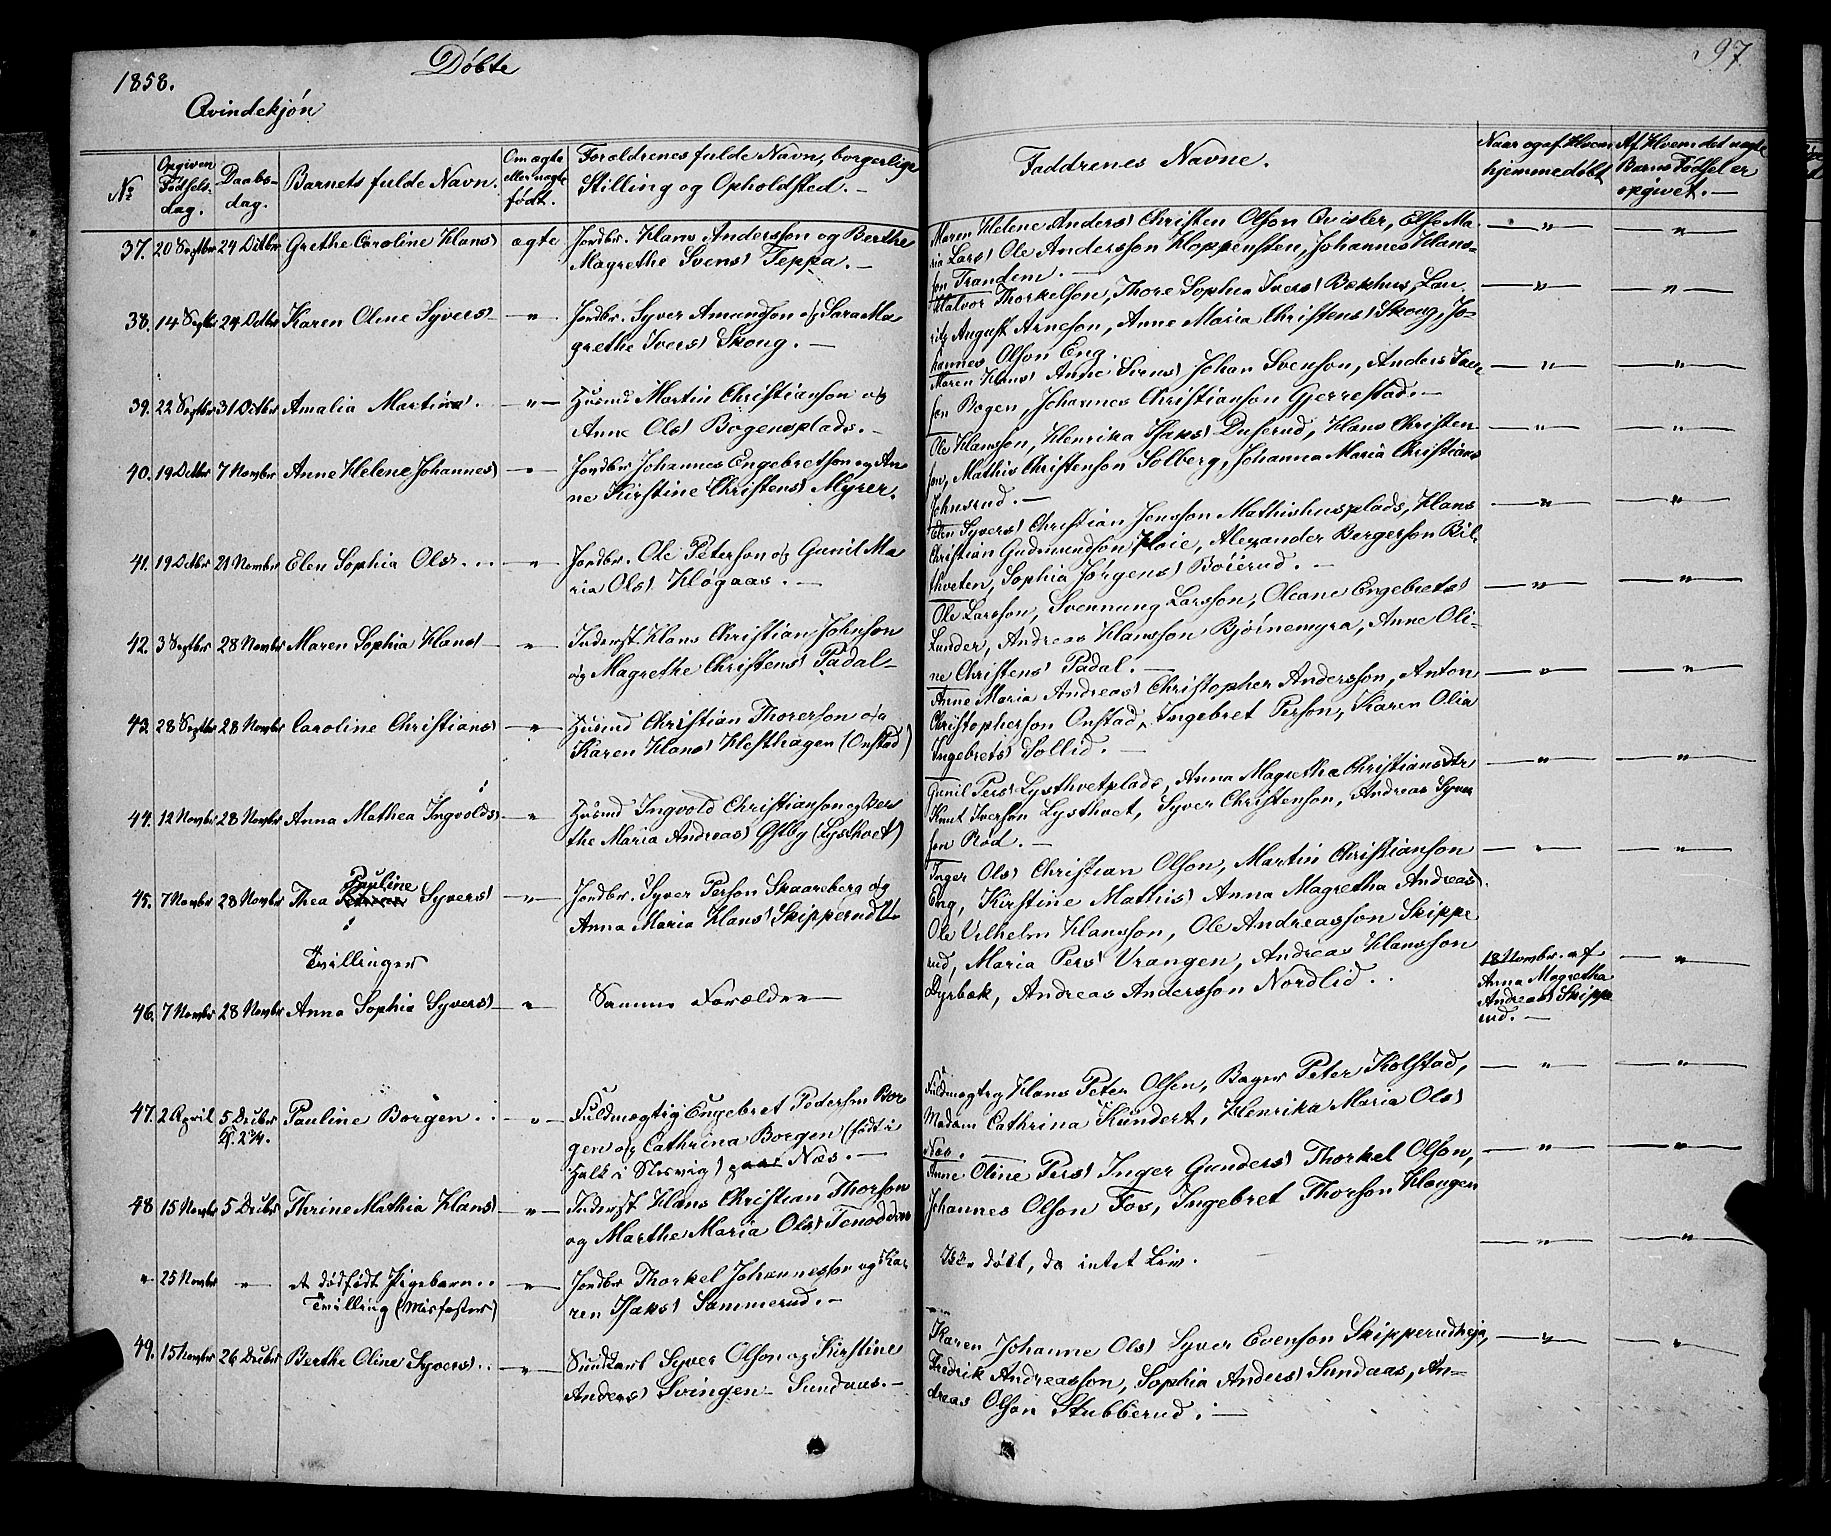 1858.
Døbte
97
Qvindekjøn
No
Opgiven Fødsels dag.
Daabs-dag.
Barnets fulde Navn.
Om ægte eller uægte født.
Forældrenes fulde Navn, borgerlige Stilling og Opholdsted.
Faddrenes Navne.
Naar og af Hvem hjemmedøbt
Af Hvem det uægte Barns Fødsel er opgivet.
37. 20 Septbr 24 Octbr Grethe Caroline Hans) ægte Jordbr. Hans Andersson og Berthe
Magrethe Svens) Teppa.
Maren Helene Anders) Christen Olson Qvisler, Else Ma-
ria Lars) Ole Andersson Kloppensten, Johannes Hans-
son Trandem.
38. 14 Septbr 24 Octbr Karen Oline Syvers) " Jordbr. Syver Amundson og Sara Ma
grethe Ivers) Skoug.
Halvor Thorkelson, Thore Sophia Ivers) Bækhus, Lau-
ritz August Arneson, Anne Maria Christens) Skoug, Jo-
hannes Olson Eng.
39. 22 Septbr 31 Octbr Amalia Martina). " Husmd Martin Christianson og
Anne Ols) Bøgensplads.
Maren Hans) Anne Johan Svenson, Anders Iver
son Bogen, Johannes Christianson Gjerrestad.
40. 19 Octbr 7 Novembr Anne Helene Johannes) " Jordbr Johannes Engebretson og An-
ne Kirstine Christens) Myrer.
Ole Hansson, Henrika Isaks) Duserud, Hans Christen
son, Mathis Christenson Solberg, Johanna Maria Christians
Johnsrud.
41. 19 Octbr 21 Novmbr Elen Sophia Ols) " Jordbr. Ole Peterson og Gunil Ma
ria Ols) Høgaas.
Elen Syvers) Christian Jensson Mathishusplads, Hans
Christian Gudmundson Hoie, Alexander Borgerson Bil-
thveten, Sophia Jørgens) Boierud.
42. 3 Septbr 28 Novmbr Maren Sophia Hans) " Inderst Hans Christian Johnson
og Magrethe Christens) Padal
Ole Larsson, Svennung Larsson, Oleane Engebrets)
Lunder, Andreas Hansson Bjørnemyra, Anne Oli-
ne Christens) Padal.
43. 28 Septbr 28 Novmbr Caroline Christians) " Husmd Christian Thorerson og
Karen Hans) Hesthagen (Onstad)
Anne Maria Andreas) Christopher Andersson, Anton
Christopherson Onstad, Ingebret Person, Karen Olia
Ingebrets) Sollid.
44. 12 Novmbr 28 Novmbr Anna Mathea Ingvolds) " Husmd Ingvold Christianson og Ber
the Maria Andreas) Østby (Lysthvet)
Gunil Pers) Lysthvetplads, Anna Magretha Christiansdtr
Knut Iverson Lysthvet, Syver Christenson, Andreas Syver
son Rød.
45. 7 Novmbr 28 Novmbr Thea Pauline Syvers) " Jordbr. Syver Person Skaareberg og
Anna Maria Hans) Skipperud
Inger Ols) Christian Olson, Martin Christianson
Eng, Kirstine Mathis) Anna Magretha Andreas)
Ole Vilhelm Hansson, Ole Andreasson Skippe
rud, Maria Pers) Vrangen, Andreas Hansson
Dyrbæk, Andreas Andersson Nordlid.
Tvillinger
46. 7 Novmbr 28 Novmbr Anna Sophia Syvers) " Samme Forældre
18 Novmbr. af
Anna Magretha
Andreas) Skippe
rud.
47. 2 April 5 Decbr Pauline Borgen " Fuldmægtig Engebret Pedersen Bor
gen og Cathrina Borgen (født i
Halk i Slesvig) Næs.
Fuldmægtig Hans Peter Olsen, Bager Peter Kolstad,
Madam Cathrina Kundert, Henrika Maria Ols)
Næs.
48. 15 Novmbr 5 Decbr Thrine Mathia Hans) " Inderst Hans Christian Thorson
og Marthe Maria Ols)
Anne Oline Pers) Inger Gunders) Thorkel Olson,
Johannes Olson Fos, Ingebret Thorson Haugen
" 25 Novmbr " et dødfødt Pigebarn. " Jordbr Thorkel Johannesson og Ka
Tvilling (Misfoster) ren Isaks) Sammerud.
Ikke døbt, da intet Liv.
49. 15 Novmbr 26 Decbr Berthe Oline Syvers) " Syver Olson og Kirstine
Anders) Svingen Sundaas.
Karen Johanne Ols) Syver Evenson Skipperudeie,
Fredrik Andreasson, Sophia Anders) Sundaas, An-
dreas Olson Stubberud.